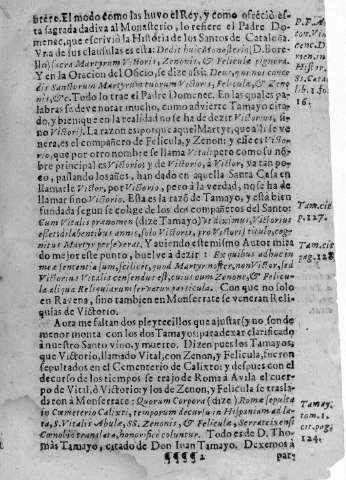 brero. El modo como las huvo el Rey, y como ofreciò es-
ta sagrada dadiva al Monasterio, lo refiere el Padre Dome-
nec, que escriviò la Historia de los Santos de Cataluña.
Vna de sus clausulas es esta: Dedit huic Monasterio (D. Bore-
llo) sacra Martyrum Victoris, Zenonis, & Feliculæ pignora.
Y en la Oracion del Oficio, se dize assi: Deus, qui nos conce-
dis Sanctorum Martyrum tuorum Victoris, Felicula, & Zeno-
nis, &c. Todo lo trae el Padre Domenec. En las quales pa-
labras se deve notar mucho, como advierte Tamayo cita-
do, y bien, que en la realidad no se ha de dezir Victoris, si-
no Victorij. La razon es; porque aquel Martyr, que allì se ve-
nera, es el compañero de Felicula, y Zenon: y esse es Victo-
rio, que por otro nombre se llama Vital; pero como su nõ-
bre principal es Victorio, y de Victorio, à Victor, va tan po-
co, passando los años, han dado en aquella Santa Casa en
llamarle Victor, por Victorio, pero à la verdad, no se ha de
llamar sino Victorio. Esta es la razõ de Tamayo, y està bien
fundada segun se colige de los dos compañeros del Santo:
Cum Vitalis prænomen (dize Tamayo) vt diximus, Victorius
esset in labentibus annis, solo Victoris, pro Victorij titulo, cog-
nitus Martyr perseverat. Y aviendo este mismo Autor mira-
do mejor este punto, buelve à dezir: Ex quibus adhuc in
mea sententia sum, scilicet, quod Martyr noster, non Victor, sed
Victorius Vitalis censendus est, cuius cum Zenonis, & Felicu-
læ aliqua Reliquiarum servatur particula. Con que no solo
en Ravena, sino tambien en Monserrate se veneran Reli-
quias de Victorio.
Aora me faltan dos pleytecillos que ajustar (y no son de
menor monta con los dos Tamayos; para dexar clarificado
à nuestro Santo vivo, y muerto. Dizen pues los Tamayos,
que Victorio, llamado Vital, con Zenon, y Felicula, fueron
sepultados en el Cementerio de Calixto: y despues con el
decurso de los tiempos se trajo de Roma à Avila el cuer-
po de Vital, ò Victorio; y los de Zenon, y Felicula se trasla-
daron à Monserrate: Quorum Corpora (dize) Romæ sepulta
in Cœmeterio Calixti, temporum decursu in Hispaniam ad la-
ta, S. Vitalis Abulæ, SS. Zenonis, & Feliculæ, Serrateixensi
Cœnobio translata, honorifice coluntur. Todo es de D. Tho-
màs Tamayo, citado de Don Iuan Tamayo. Dexemos à
¶¶¶¶ 2
par-
P. F. A
ton. Vin
cenc. D
men. in
Histor.
SS. Catal.
lib. 1. fo.
16.
Tam. cit
p. 127.
Tam. cit
pag. 128
Tamay.
tom. 1.
cit. pag.
124.